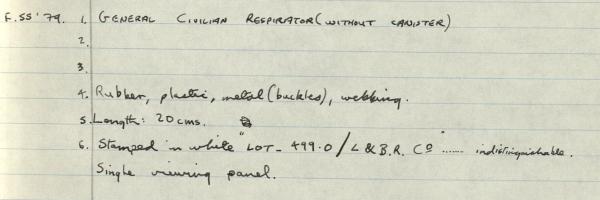 F.SS '79. 1. GENERAL CIVILIAN RESPIRATOR (WITHOUT CANISTER)
2.
3.
4. Rubber, plastic, metal (buckles), webbing.
5. Length: 20 cms.
6. Stamped in white "LOT - 499.0 / L & B.R. Co ....... indistinguishable.
Single viewing panel.